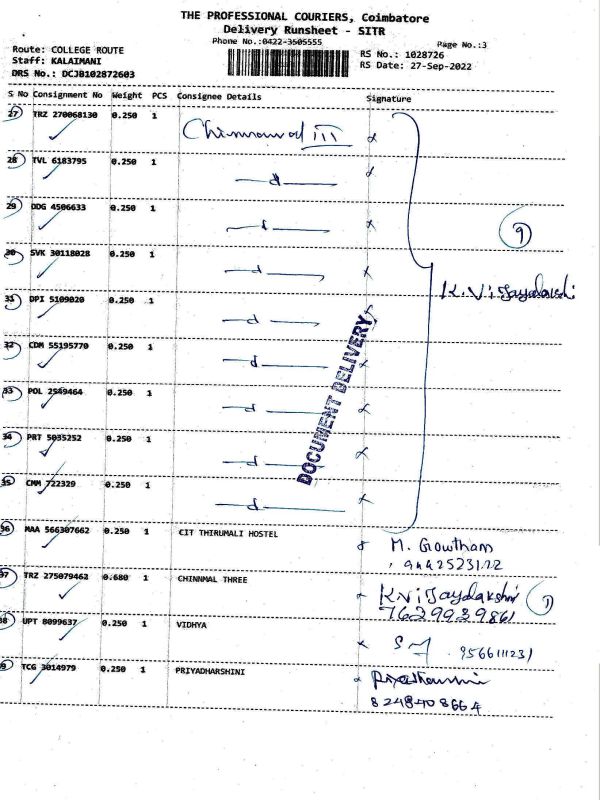 THE PROFESSIONAL COURIERS, Coimbatore
Delivery Runsheet - SITR
Phone No.:0422-3505555
Page No.:3
Route: COLLEGE ROUTE
Staff: KALAIMANI
DRS No.: DCJB102872603
RS No.: 1028726
RS Date: 27-Sep-2022
S No Consignment No Weight PCS Consignee Details Signature
27 TRZ 270068130 0.250 1 III
28 TVL 6183795 0.250 1 d
29 DDG 4506633 0.250 1 d
9
30 SVK 30118028 0.250 1 d
K.Vijayalakshi
31 DPI 5109020 0.250 1 d
32 CDM 55195770 0.250 1 d
33 POL 2549464 0.250 1 d
34 PRT 5035252 0.250 1 d
35 CMM 722329 0.250 1 d
DOCUMENT DELIVERY
36 MAA 566307662 0.250 1 CIT THIRUMALI HOSTEL M. Gowtham
37 TRZ 275079462 0.680 1 CHINNMAL THREE K.Vijayalakshi
7629929861
38 UPT 8099637 0.250 1 VIDHYA 9566111231
39 TCG 3014979 0.250 1 PRIYADHARSHINI Priyadharshini
8248408664